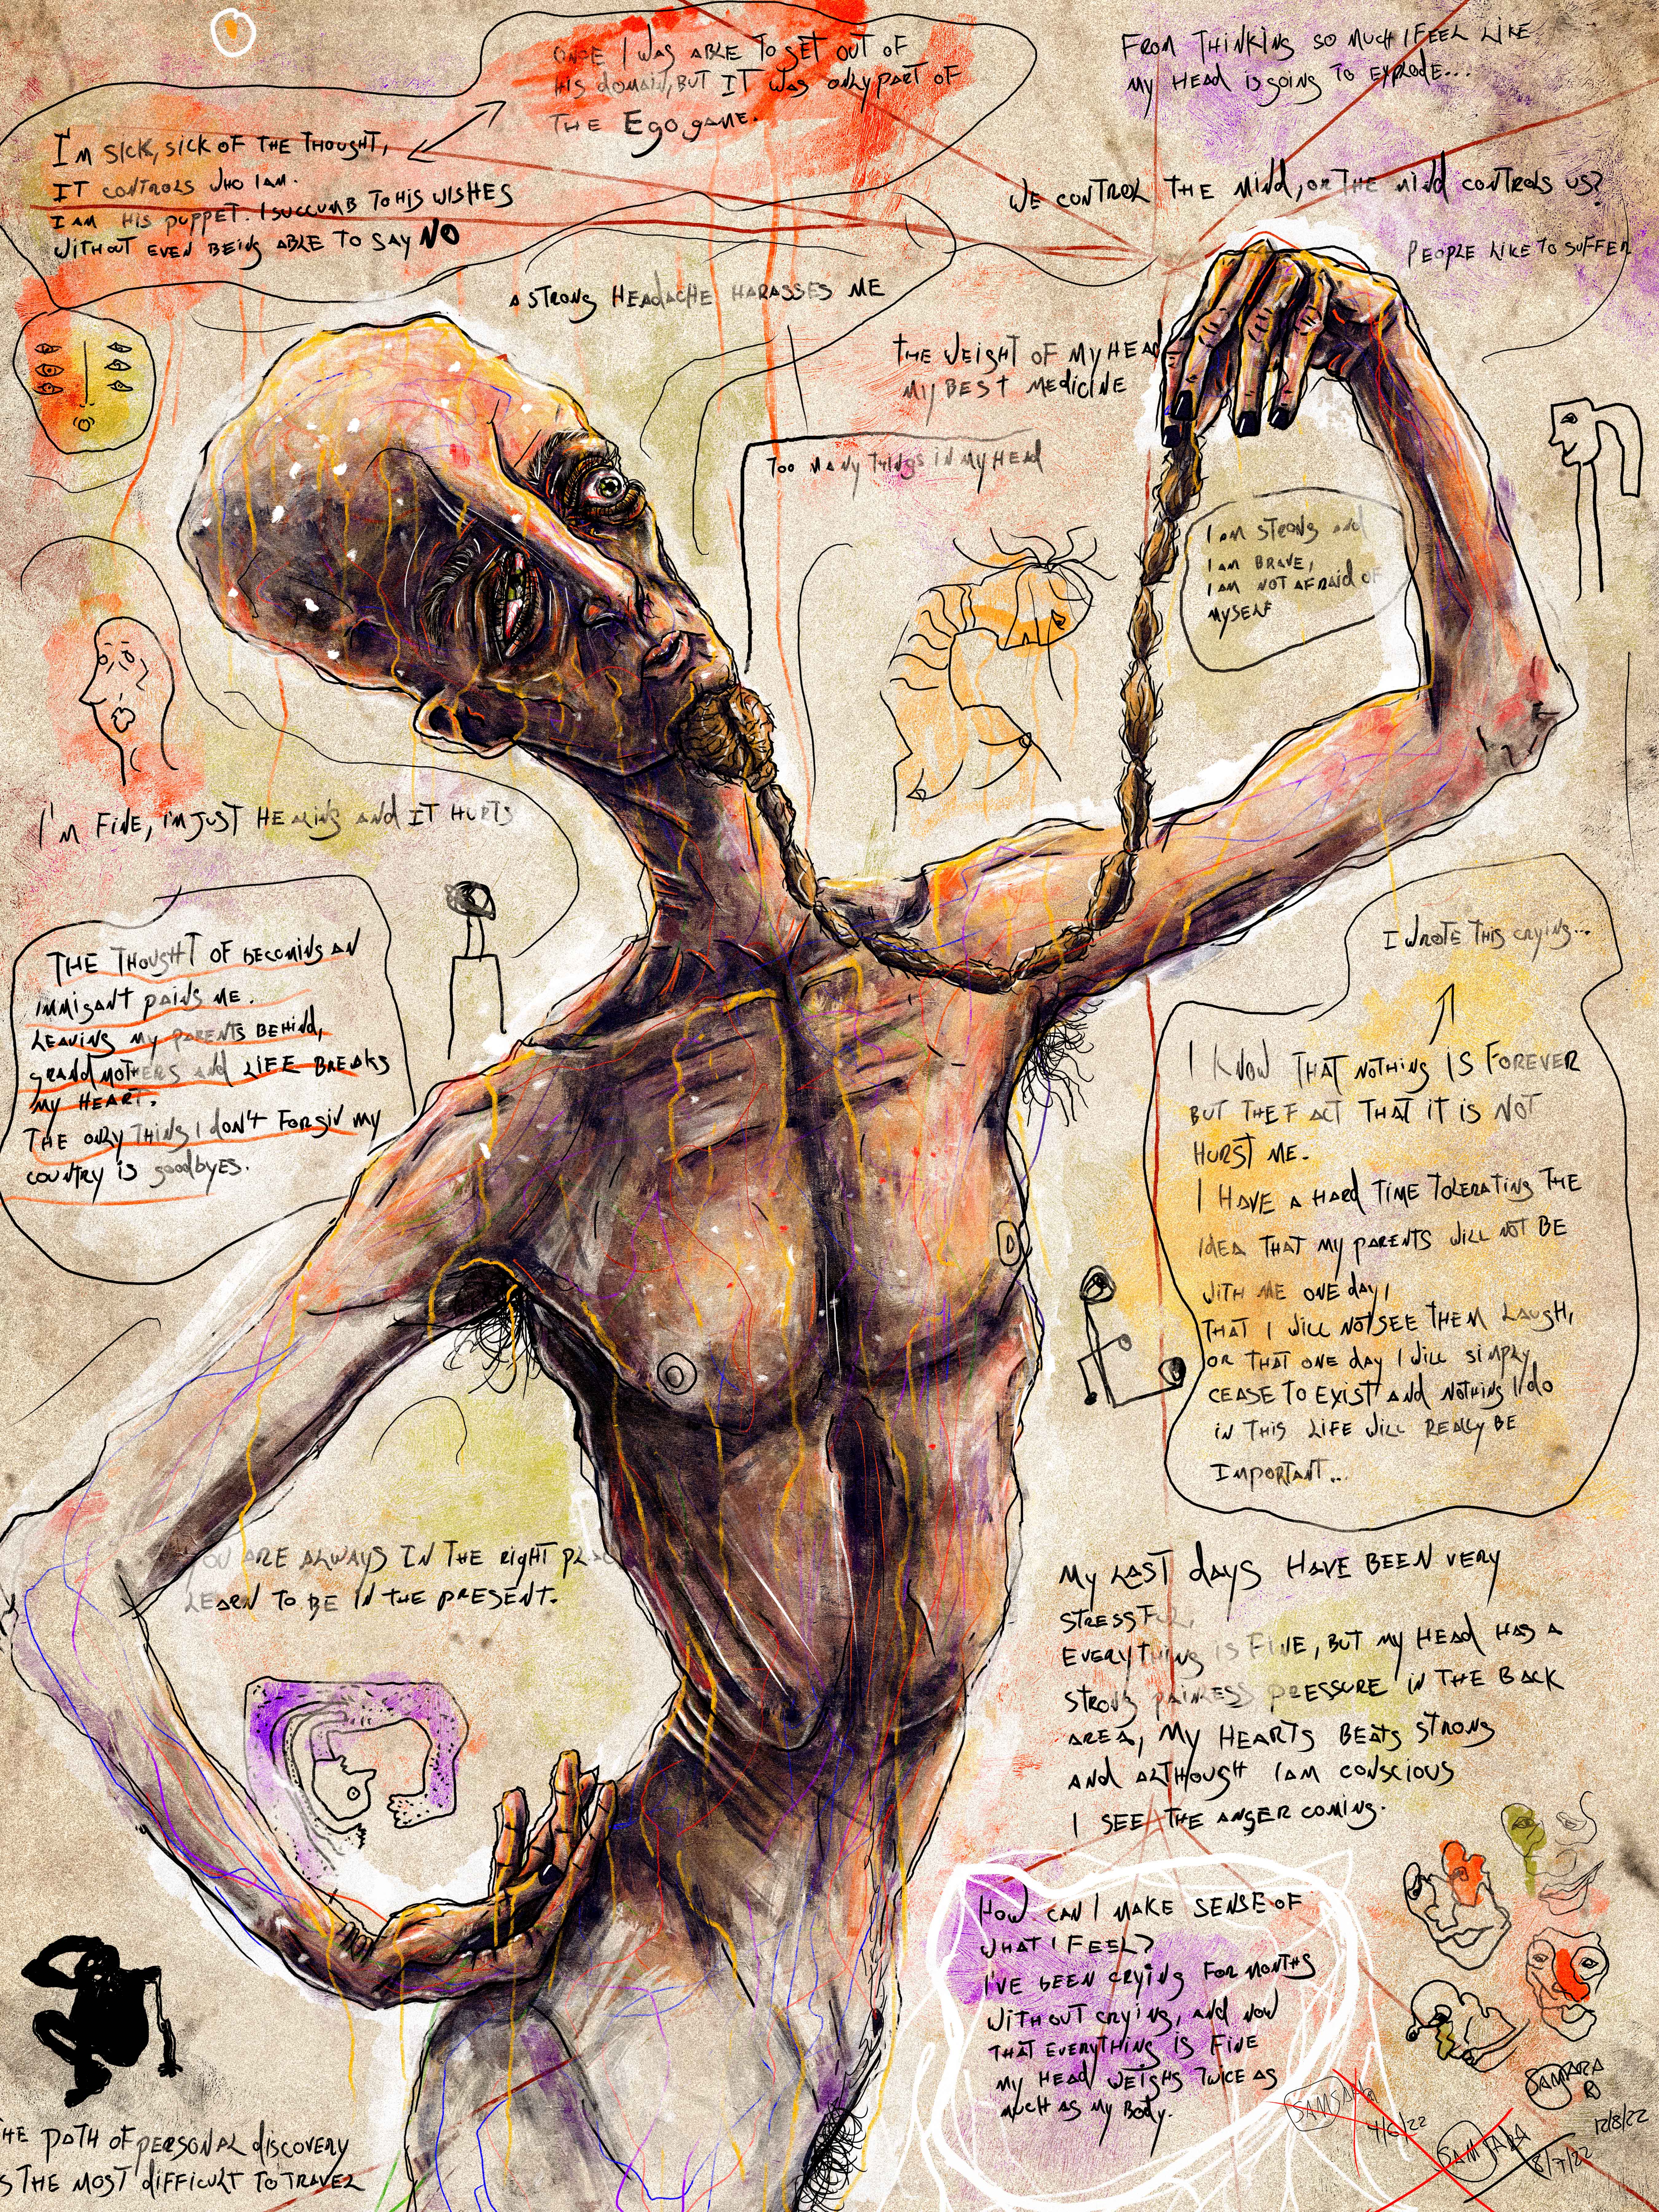 ONCE I WAS ABLE TO GET OUT OF
HIS DOMAIN, BUT IT WAS ONLY PART OF
THE EGO GAME.
FROM THINKING SO MUCH I FEEL LIKE
MY HEAD IS GOING TO EXPLODE...
I'M SICK, SICK OF THE THOUGHT,
IT CONTROLS WHO I AM.
I AM HIS PUPPET. I SUCCUMB TO HIS WISHES
WITHOUT EVEN BEING ABLE TO SAY NO
WE CONTROL THE MIND, OR THE MIND CONTROLS US?
PEOPLE LIKE TO SUFFER
A STRONG HEADACHE HARASSES ME
THE WEIGHT OF MY HEAD
MY BEST MEDICINE
TOO MANY THINGS IN MY HEAD
I AM STRONG AND
I AM BRAVE,
I AM NOT AFRAID OF
MYSELF
I'M FINE, I'M JUST HEALING AND IT HURTS
THE THOUGHT OF BECOMING AN
IMMIGANT PAINS ME.
LEAVING MY PARENTS BEHIND,
GRANDMOTHERS AND LIFE BREAKS
MY HEART.
THE ONLY THING I DON'T FORGIV MY
COUNTRY IS GOODBYES.
I WROTE THIS CRYING...
I KNOW THAT NOTHING IS FOREVER
BUT THE FACT THAT IT IS NOT
HURST ME.
I HAVE A HARD TIME TOLERATING THE
IDEA THAT MY PARENTS WILL NOT BE
WITH ME ONE DAY,
THAT I WILL NOT SEE THEM LAUGH,
OR THAT ONE DAY I WILL SIMPLY
CEASE TO EXIST AND NOTHING I DO
IN THIS LIFE WILL REALLY BE
IMPORTANT...
YOU ARE ALWAYS IN THE RIGHT PLAC
LEARN TO BE IN THE PRESENT.
MY LAST DAYS HAVE BEEN VERY
STRESSFUL,
EVERYTHING IS FINE, BUT MY HEAD HAS A
STRONG PAINLESS PRESSURE IN THE BACK
AREA, MY HEARTS BEATS STRONG
AND ALTHOUGH I AM CONSCIOUS
I SEE THE ANGER COMING.
HOW CAN I MAKE SENSE OF
WHAT I FEEL?
I'VE BEEN CRYING FOR MONTHS
WITHOUT CRYING, AND NOW
THAT EVERYTHING IS FINE
MY HEAD WEIGHS TWICE AS
MUCH AS MY BODY.
HE PATH OF PERSONAL DISCOVERY
S THE MOST DIFFICULT TO TRAVEL
SAMSARA
SAMSARA
4/6/22
SAMSARA
8/7/22
12/8/22